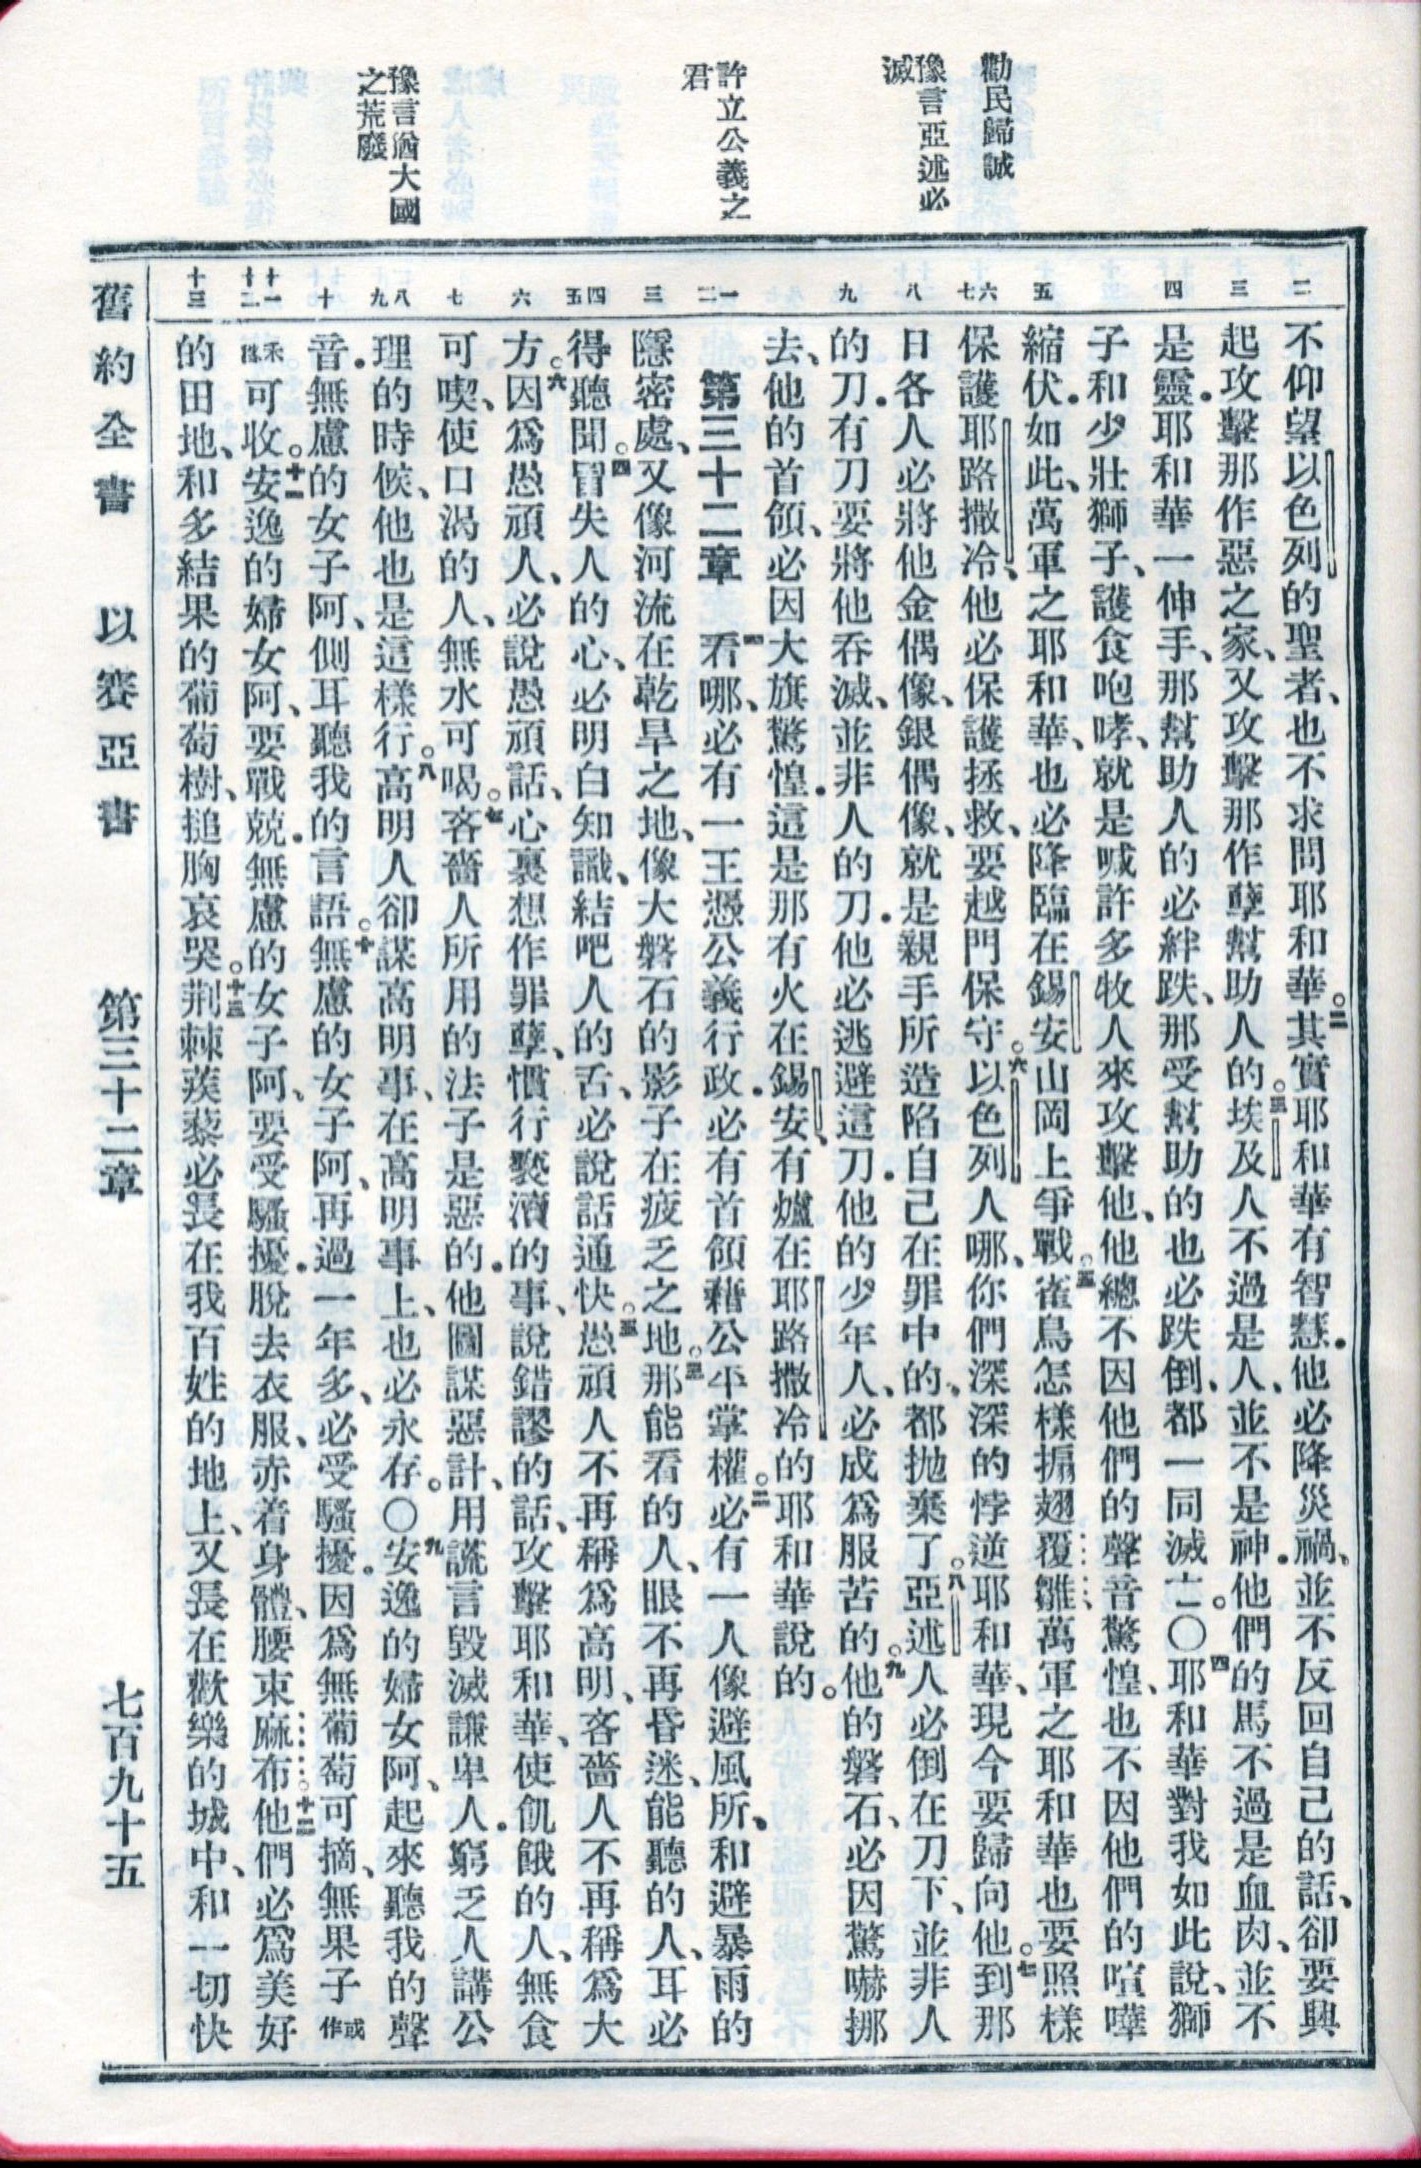 勸民歸誠
豫言亞述必
滅
許立公義之
君
豫言猶大國
之荒廢
二
三
四
五
六
七
八
九
一
二
三
四
五
六
七
八
九
十
十一
十二
十三
不仰望以色列的聖者、也不求問耶和華。二其實耶和華有智慧．他必降災禍、並不反回自己的話、卻要興
起攻擊那作惡之家、又攻擊那作孽幫助人的。三埃及人不過是人、並不是神．他們的馬不過是血肉、並不
是靈．耶和華一伸手、那幫助人的必絆跌、那受幫助的也必跌倒、都一同滅亡。〇四耶和華對我如此說、獅
子和少壯獅子、護食咆哮、就是喊許多牧人來攻擊他、他總不因他們的聲音驚惶、也不因他們的喧嘩
縮伏．如此、萬軍之耶和華、也必降臨在錫安山岡上爭戰。五雀鳥怎樣搧翅覆雛、萬軍之耶和華也要照樣
保護耶路撒冷、他必保護拯救、要越門保守。六以色列人哪、你們深深的悖逆耶和華、現今要歸向他。七到那
日各人必將他金偶像、銀偶像、就是親手所造陷自己在罪中的、都抛棄了。八亞述人必倒在刀下、並非人
的刀．有刀要將他吞滅、並非人的刀．他必逃避這刀．他的少年人、必成為服苦的。九他的磐石、必因驚嚇挪
去、他的首領、必因大旗驚惶．這是那有火在錫安、有爐在耶路撒冷的耶和華說的。
第三十二章　一看哪、必有一王憑公義行政．必有首領藉公平掌權。二必有一人像避風所、和避暴雨的
隱密處、又像河流在乾旱之地、像大磐石的影子在疲乏之地。三那能看的人、眼不再昏迷、能聽的人、耳必
得聽聞。四冒失人的心、必明白知識、結吧人的舌、必說話通快。五愚頑人不再稱為高明、吝嗇人不再稱為大
方。六因為愚頑人、必說愚頑話、心裏想作罪孽、慣行褻瀆的事、說錯謬的話、攻擊耶和華、使飢餓的人、無食
可喫、使口渴的人、無水可喝。七吝嗇人所用的法子是惡的．他圖謀惡計、用謊言毀滅謙卑人．窮乏人講公
理的時候、他也是這樣行。八高明人卻謀高明事、在高明事上、也必永存。〇九安逸的婦女阿、起來聽我的聲
音．無慮的女子阿、側耳聽我的言語。十無慮的女子阿、再過一年多、必受騷擾．因為無葡萄可摘、無果子或作
禾稼可收。十一安逸的婦女阿、要戰兢．無慮的女子阿、要受騷擾．脫去衣服、赤着身體、腰束麻布。十二他們必為美好
的田地、和多結果的葡萄樹、搥胸哀哭。十三荆棘蒺藜必長在我百姓的地上、又長在歡樂的城中、和一切快
舊約全書　以賽亞書　第三十二章　七百九十五